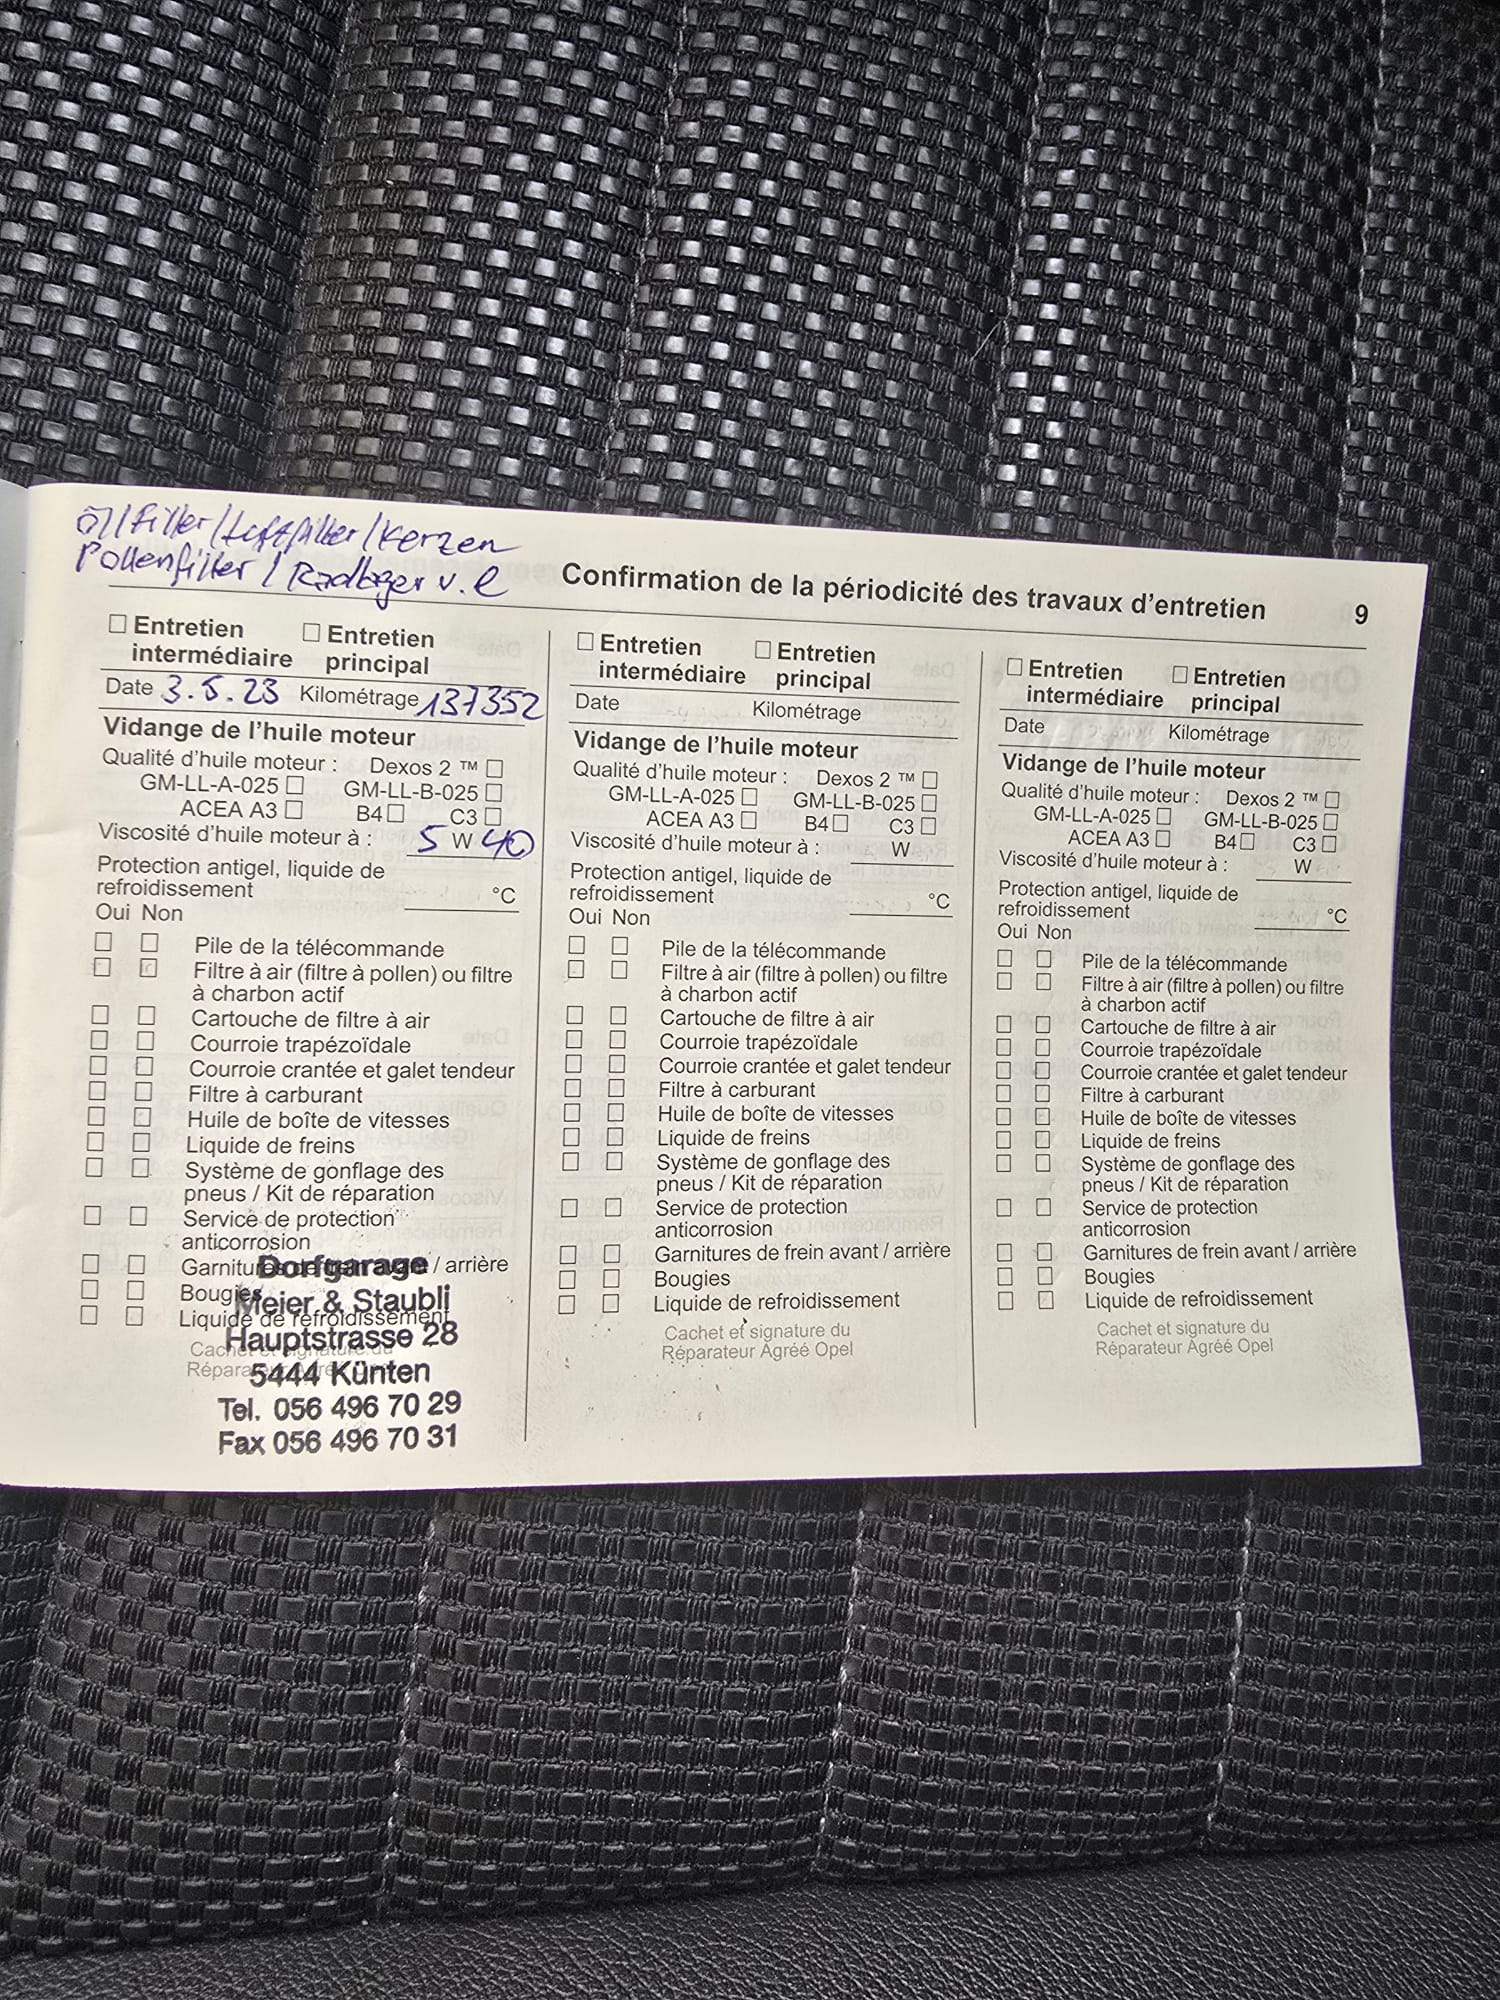 Öl/Filter/Luftfilter/Kerzen
Pollenfilter/Radlager v. l
Confirmation de la périodicité des travaux d'entretien 9
Entretien intermédiaire Entretien principal
Date 3.5.23 Kilométrage 137352
Vidange de l'huile moteur
Qualité d'huile moteur : Dexos 2 ™
GM-LL-A-025 GM-LL-B-025
ACEA A3 B4 C3
Viscosité d'huile moteur à : 5 W 40
Protection antigel, liquide de
refroidissement °C
Oui Non
Pile de la télécommande
Filtre à air (filtre à pollen) ou filtre
à charbon actif
Cartouche de filtre à air
Courroie trapézoïdale
Courroie crantée et galet tendeur
Filtre à carburant
Huile de boîte de vitesses
Liquide de freins
Système de gonflage des
pneus / Kit de réparation
Service de protection
anticorrosion
Garnitures de frein avant / arrière
Bougies
Liquide de refroidissement
Cachet et signature du
Réparateur Agréé Opel
Dorfgarage
Meier & Staubli
Hauptstrasse 28
5444 Künten
Tel. 056 496 70 29
Fax 056 496 70 31
Entretien intermédiaire Entretien principal
Date Kilométrage
Vidange de l'huile moteur
Qualité d'huile moteur : Dexos 2 ™
GM-LL-A-025 GM-LL-B-025
ACEA A3 B4 C3
Viscosité d'huile moteur à : W
Protection antigel, liquide de
refroidissement °C
Oui Non
Pile de la télécommande
Filtre à air (filtre à pollen) ou filtre
à charbon actif
Cartouche de filtre à air
Courroie trapézoïdale
Courroie crantée et galet tendeur
Filtre à carburant
Huile de boîte de vitesses
Liquide de freins
Système de gonflage des
pneus / Kit de réparation
Service de protection
anticorrosion
Garnitures de frein avant / arrière
Bougies
Liquide de refroidissement
Cachet et signature du
Réparateur Agréé Opel
Entretien intermédiaire Entretien principal
Date Kilométrage
Vidange de l'huile moteur
Qualité d'huile moteur : Dexos 2 ™
GM-LL-A-025 GM-LL-B-025
ACEA A3 B4 C3
Viscosité d'huile moteur à : W
Protection antigel, liquide de
refroidissement °C
Oui Non
Pile de la télécommande
Filtre à air (filtre à pollen) ou filtre
à charbon actif
Cartouche de filtre à air
Courroie trapézoïdale
Courroie crantée et galet tendeur
Filtre à carburant
Huile de boîte de vitesses
Liquide de freins
Système de gonflage des
pneus / Kit de réparation
Service de protection
anticorrosion
Garnitures de frein avant / arrière
Bougies
Liquide de refroidissement
Cachet et signature du
Réparateur Agréé Opel